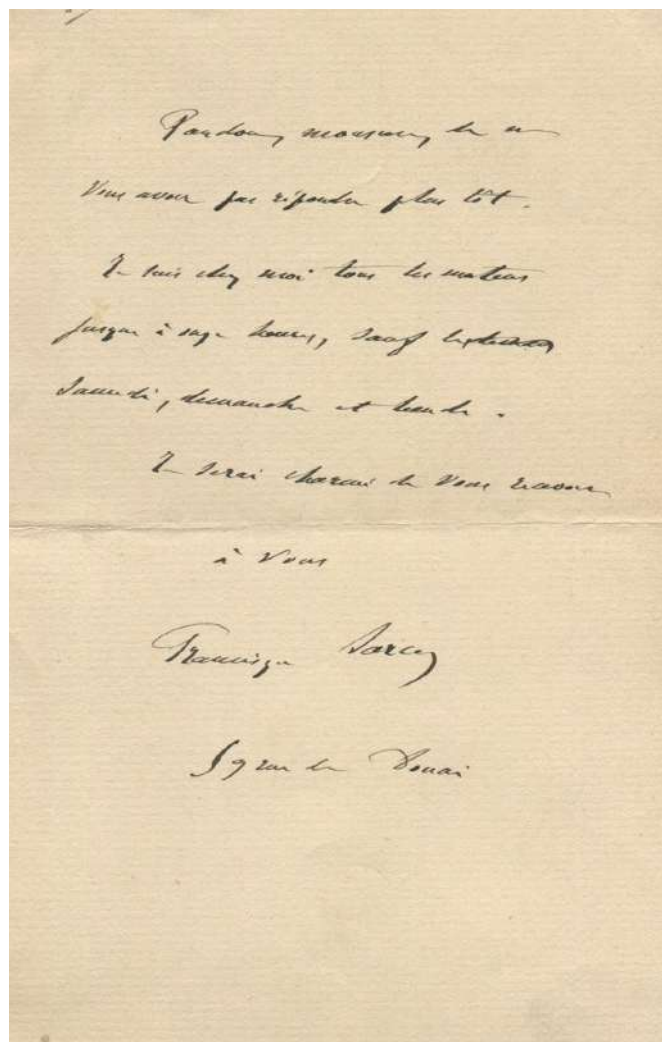 Pardon, monsieur, de ne
vous avoir pas répondu plus tôt.
Je suis chez moi tous les matins
jusqu'à onze heures, sauf les
samedi, dimanche et lundi.
Je serai charmé de vous recevoir
à vous
Francisque Sarcey
59 rue de Douai